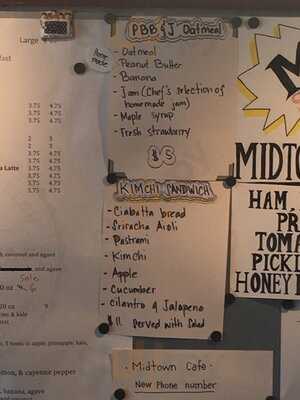 Large
fast
3.75 4.75
3.75 4.75
3.75 4.75
2 3
2 3
3.75 4.75
3.75 4.75
a Latte 3.75 4.75
3.75 4.75
3.75 4.75
3.75 4.75
coconut and agave
and agave
Sold
0 oz 6
20 oz 9
& kale
PBB&J Oatmeal
Home made
- Oatmeal
- Peanut Butter
- Banana
- Jam (Chef's selection of
homemade jam)
- Maple syrup
- Fresh strawberry
$5
KIMCHI SANDWICH
- Ciabatta bread
- Sriracha Aioli
- Pastrami
- Kimchi
- Apple
- Cucumber
- cilantro & Jalapeno
$11 Served with Salad
M
MIDTOW
HAM,
PR
TOMA
PICKL
HONEY
- Midtown Cafe -
New Phone number
& cayenne pepper
banana, agave